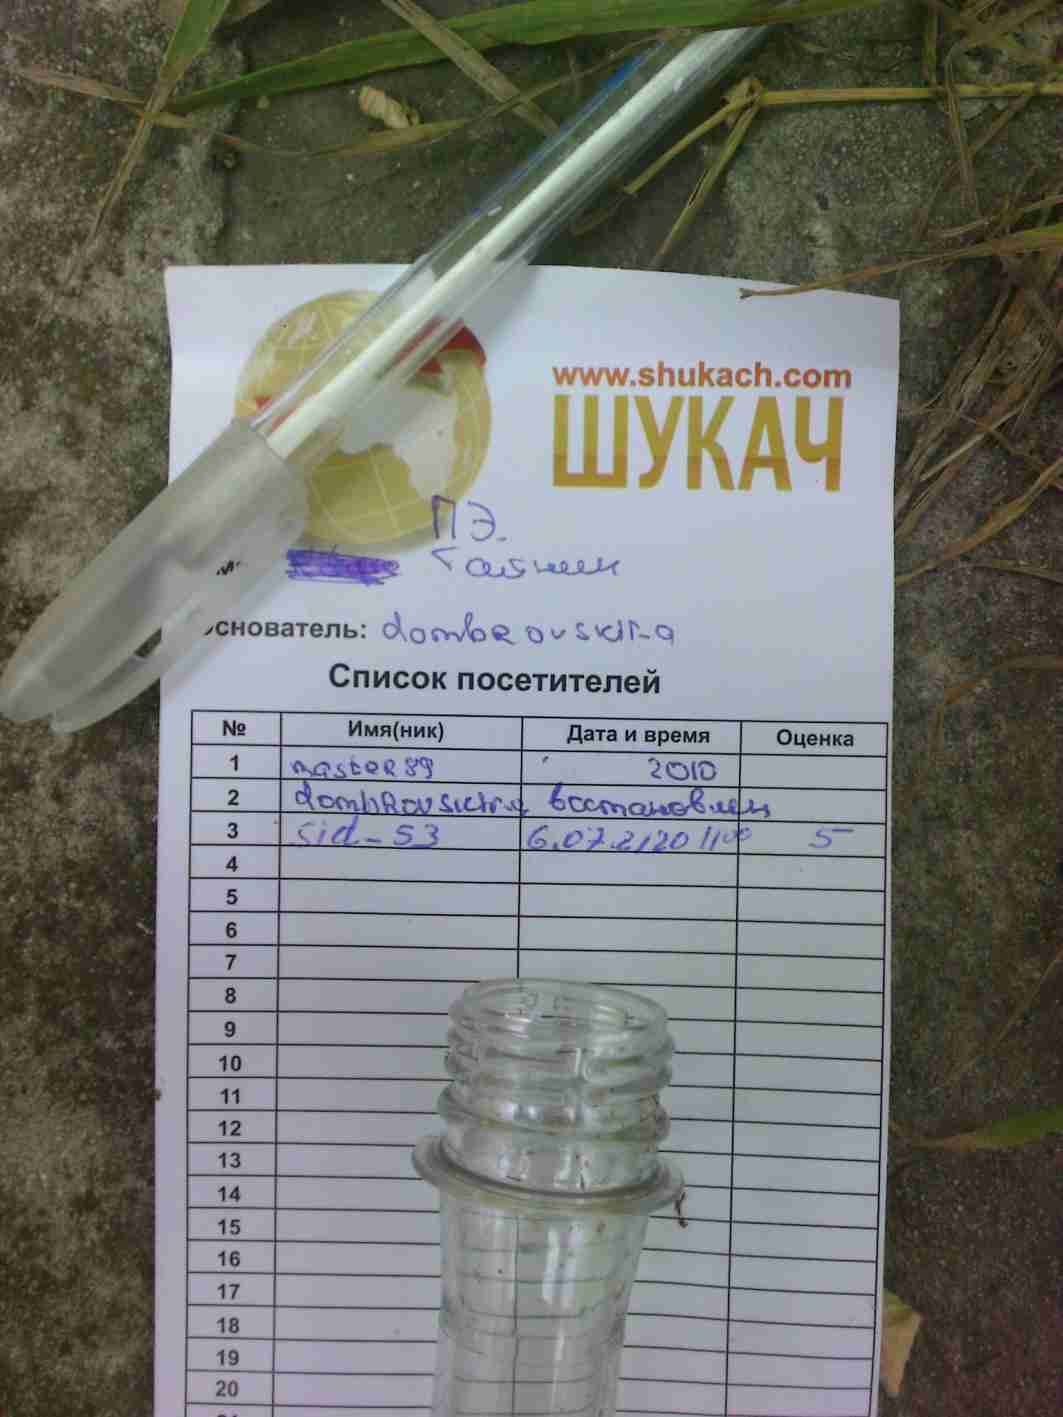 www.shukach.com
ШУКАЧ
ПЭ.
основатель: dombrovskii-a
Список посетителей
№ Имя(ник) Дата и время Оценка
1 master89 2010
2 dombrovskii-a востановлен
3 sid-53 5
4
5
6
7
8
9
10
11
12
13
14
15
16
17
18
19
20